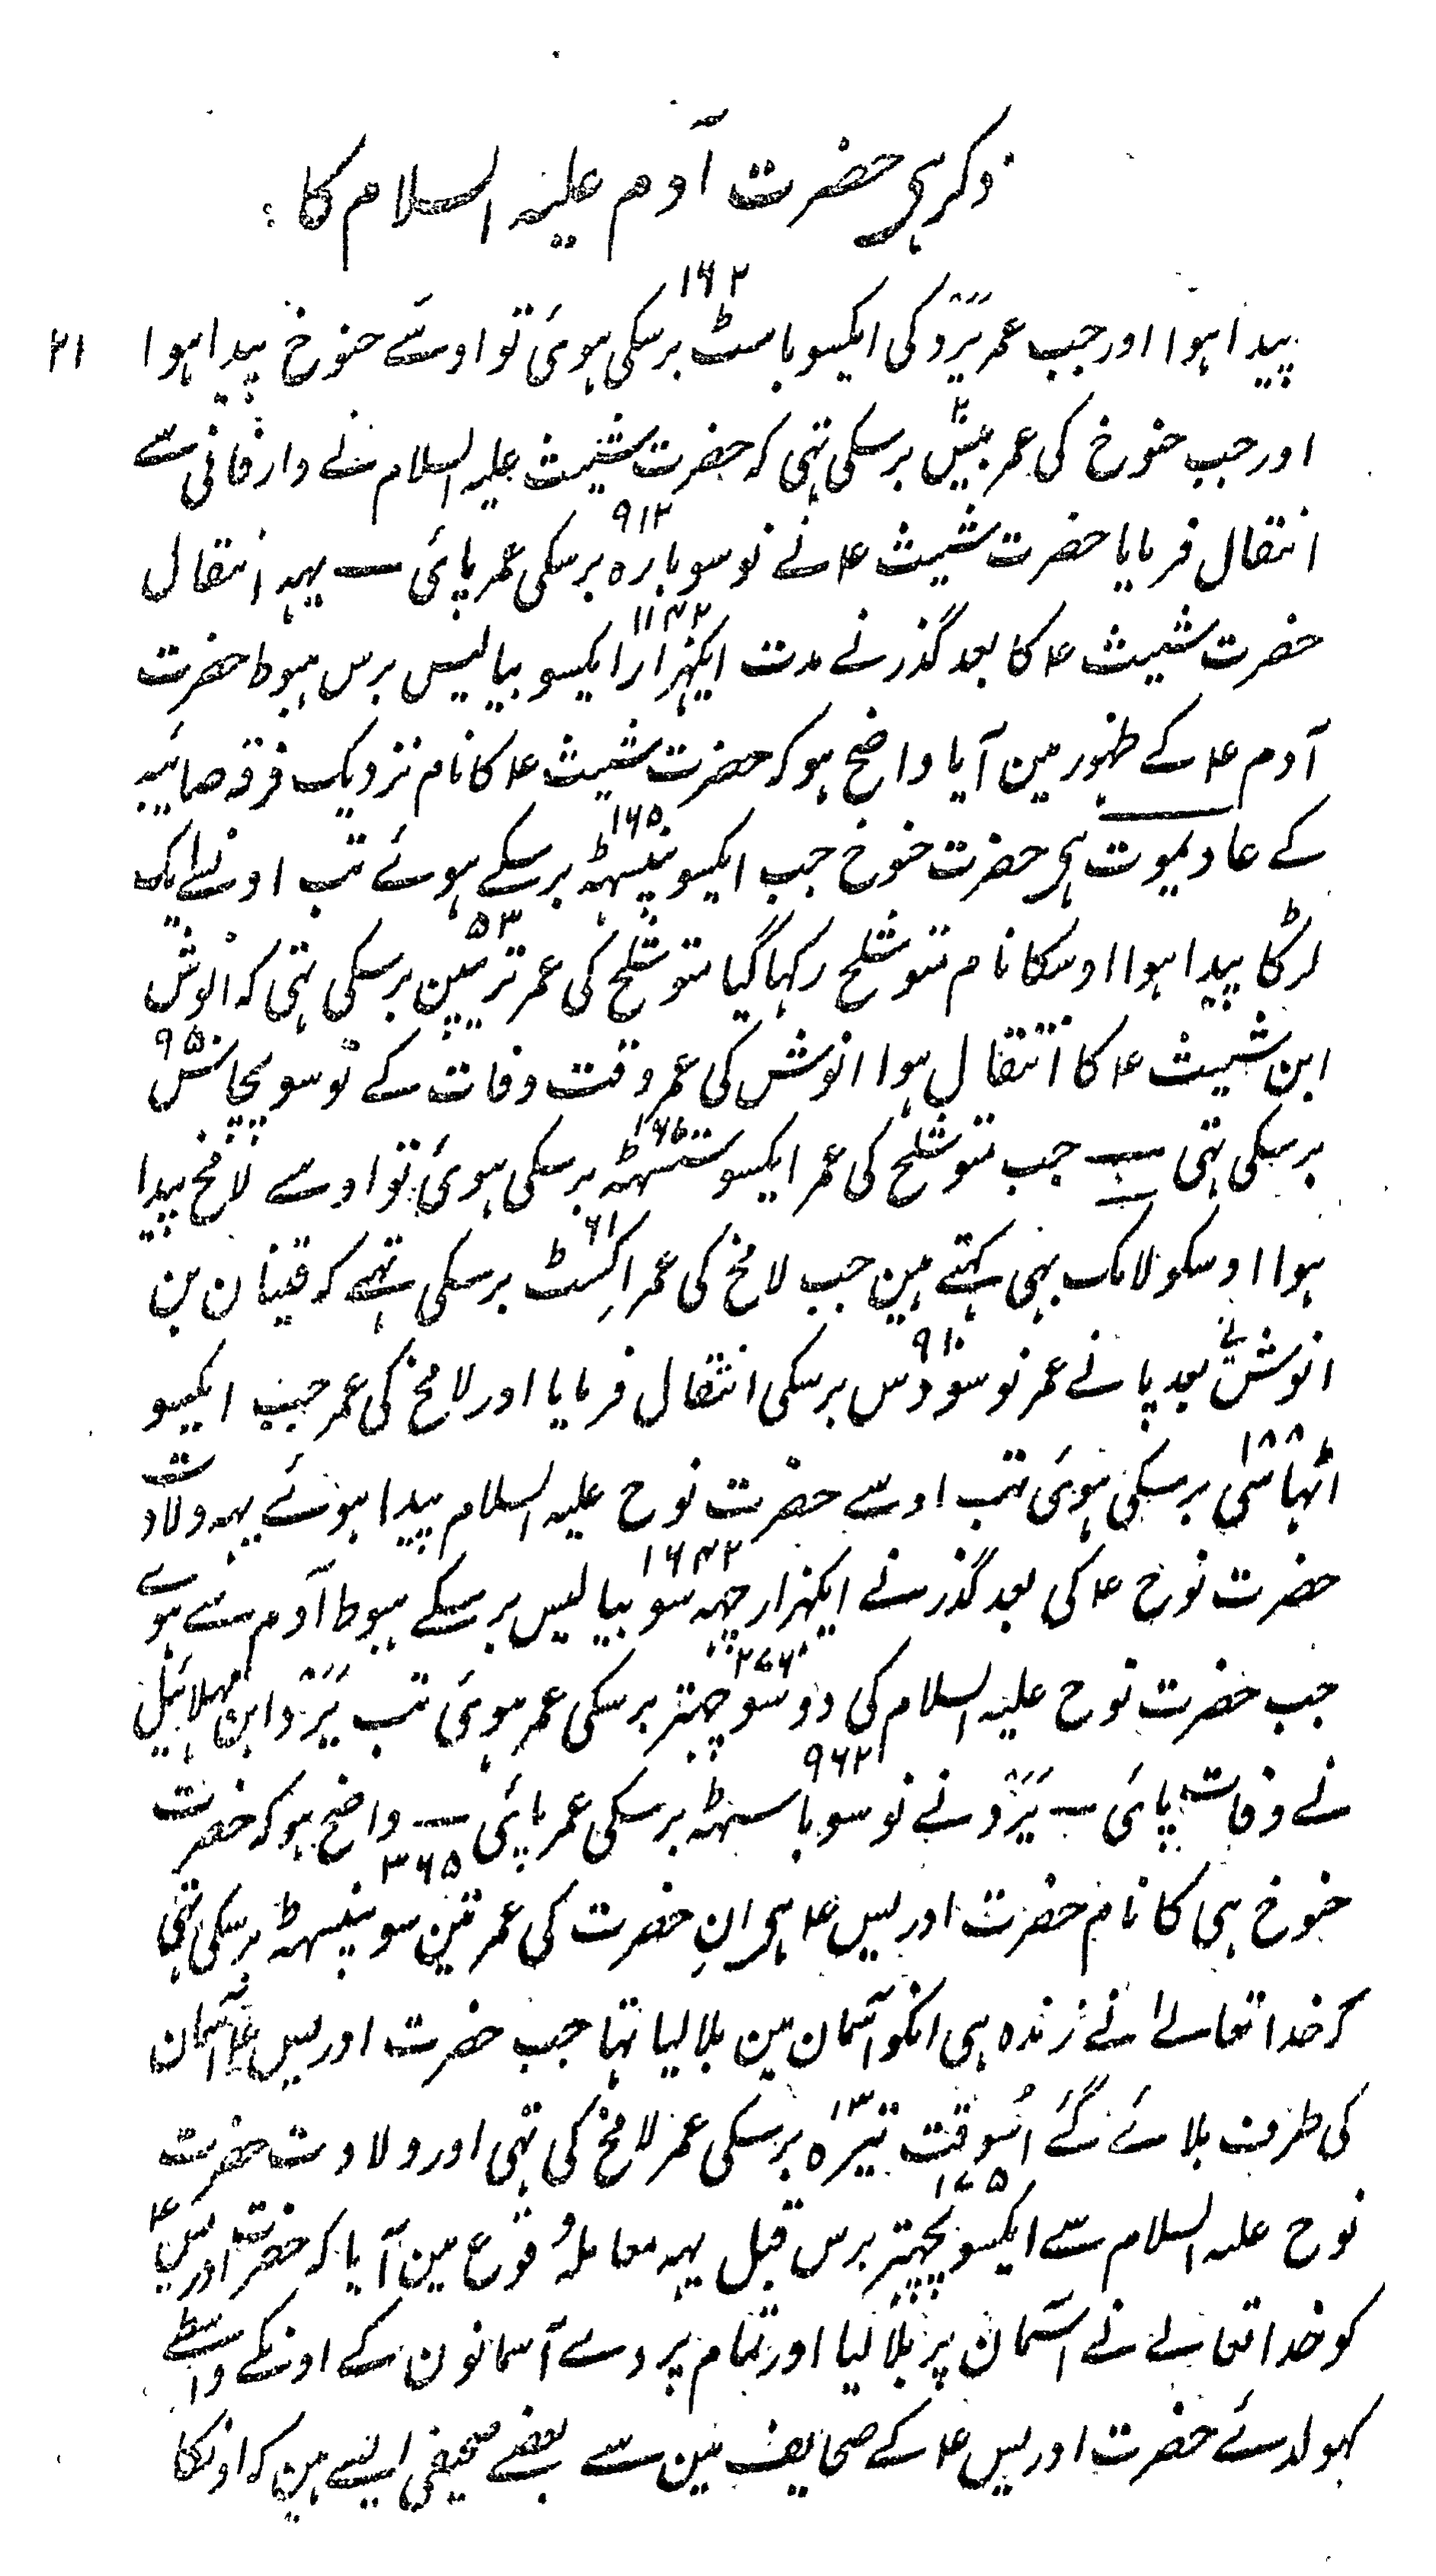 ذکر ہی حضرت آدم علیہ السلام کا :
۲۱
۱۶۲
پیدا ہوا اور جب عمر یَرَد کی ایکسو باسٹ برسکی ہوئی تو اوسے حنوخ پیدا ہوا
۲۰
اور جب خنوخ کی عمر بیس برسکی تہی کہ حضرت شیث علیہ السلام نے دار فانی سے
۹۱۲
انتقال فرمایا حضرت شیث ۴ نے نو سو بارہ برسکی عمر پائی ـــ یہہ انتقال
۱۱۴۲
حضرت شیث ۴ کا بعد گذرنے مدت ایکہزار ایکسو بیالیس برس ہبوط حضرت
آدم ۴ کے ظہور مین آیا واضح ہو کہ حضرت شیث ۴ کا نام نزدیک فرقہ صائبہ
۱۶۵
کے عادیموت ہی حضرت خنوخ جب ایکسو پنیسہٹہ برسکے ہوئے تب اونسے ایک
۵۳
لڑکا پیدا ہوا اوسکا نام متوشلح رکہا گیا متوشلح کی عمر ترپین برسکی تہی کہ انوش
۹۵۰
ابن شیث ۴ کا انتقال ہوا انوش کی عمر وقت وفات کے نو سو پچاس
۱۶۷
برسکی تہی ـــ جب متوشلح کی عمر ایکسو ستسہٹہ برسکی ہوئی تو اوسے لامخ پیدا
۶۱
ہوا اوسکو لامک بہی کہتے ہین جب لامخ کی عمر اکسٹ برسکی تہے کہ قینان بن
۹۱۰
انوش نے بعد پانے عمر نو سو دس برسکی انتقال فرمایا اور لامخ کی عمر جب ایکسو
۱۸۸
اٹہاسی برسکی ہوئی تب اوسے حضرت نوح علیہ السلام پیدا ہوئے یہہ ولادت
۱۶۴۲
حضرت نوح ۴ کی بعد گذرنے ایکہزار چہہ سو بیالیس برسکے ہبوط آدم سے ہوے
۲۷۶
جب حضرت نوح علیہ السلام کی دو سو چہتر برسکی عمر ہوئی تب یَرَد ابن مہلائیل
۹۶۲
نے وفات پائی ـــ یَرَد نے نو سو باسہٹہ برسکی عمر پائی ـــ واضح ہو کہ حضرت
۳۶۵
خنوخ ہی کا نام حضرت ادریس ۴ ہی انِ حضرت کی عمر تین سو پنیسہٹہ برسکی تہی
کہ خدا تعالےٰ نے زندہ ہی انکو آسمان مین بلا لیا تہا جب حضرت ادریس ۴ آسمان
۱۳
کی طرف بلائے گئے اسُوقت تیرہ برسکی عمر لامخ کی تہی اور ولادت حضرت
۱۷۵
نوح علیہ السلام سے ایکسو پچہتر برس قبل یہہ معاملہ وقوع مین آیا کہ حضرت ادریس ۴
کو خدا تعالےٰ نے آسمان پر بلا لیا اور تمام پردے آسمانون کے اونکے واسطے
کہولدئے حضرت ادریس ۴ کے صحایف مین سے بعضے صحیفی ایسے ہین کہ اونکا